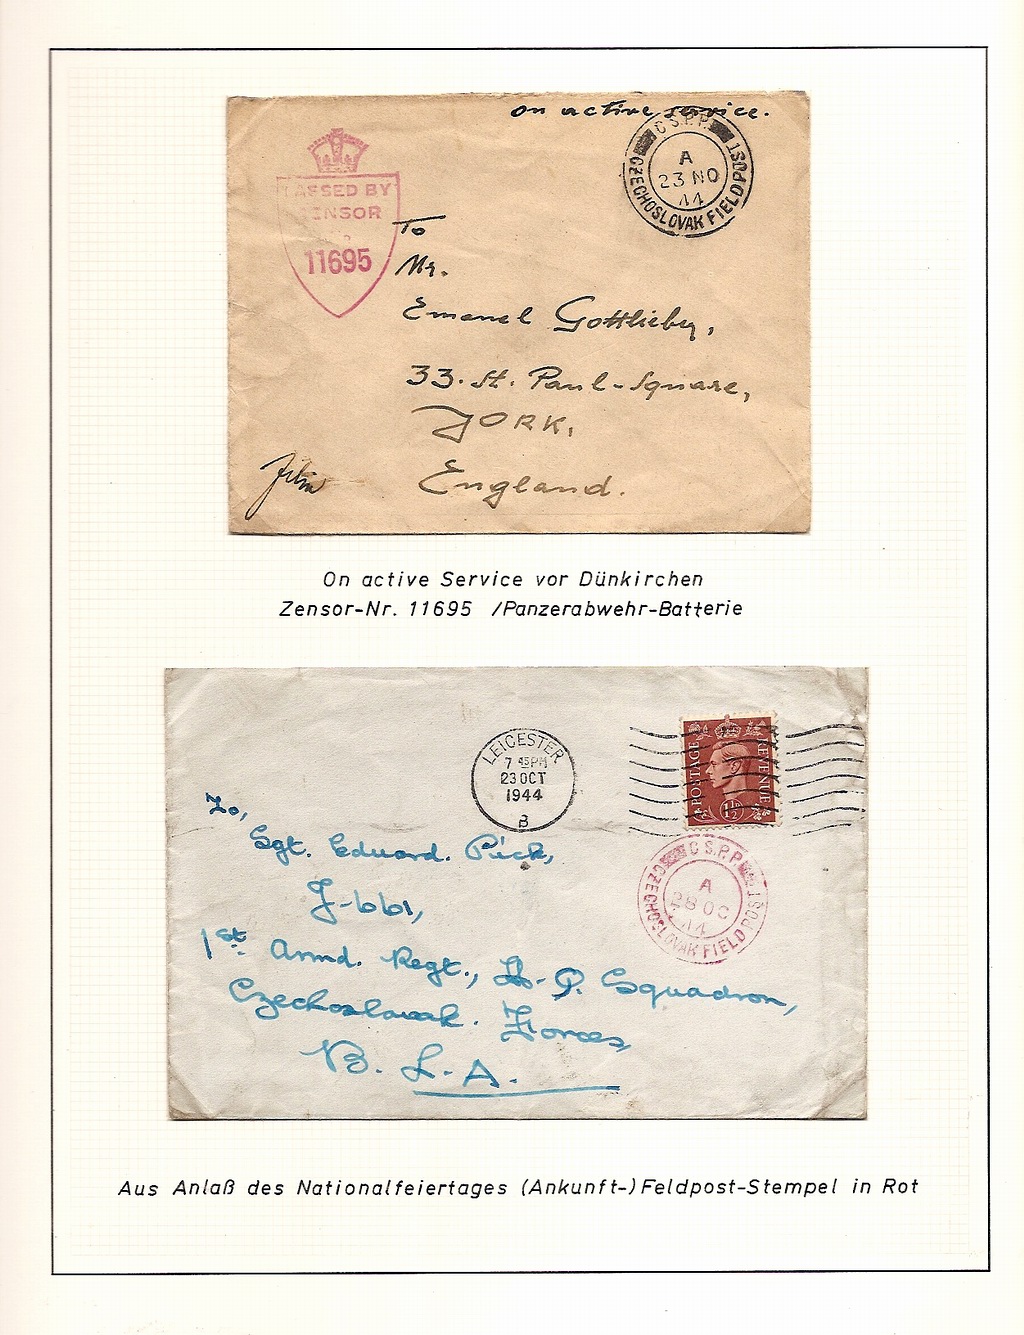 on active service.
C.S.P.P.
A
23 NO
44
CZECHOSLOVAK FIELD POST
PASSED BY
CENSOR
11695
To
Mr.
Emanel Gottlieber,
33. St. Paul-Square,
YORK,
England.
On active Service vor Dünkirchen
Zensor-Nr. 11695 /Panzerabwehr-Batterie
LEICESTER
7 45 PM
23 OCT
1944
B
POSTAGE REVENUE
1½D
C.S.P.P.
A
28 OC
44
CZECHOSLOVAK FIELD POST
To,
Sgt. Eduard. Pick,
J-661,
1st Armd. Regt., H.Q. Squadron,
Czechoslovak. Forces,
B. L. A.
Aus Anlaß des Nationalfeiertages (Ankunft-)Feldpost-Stempel in Rot